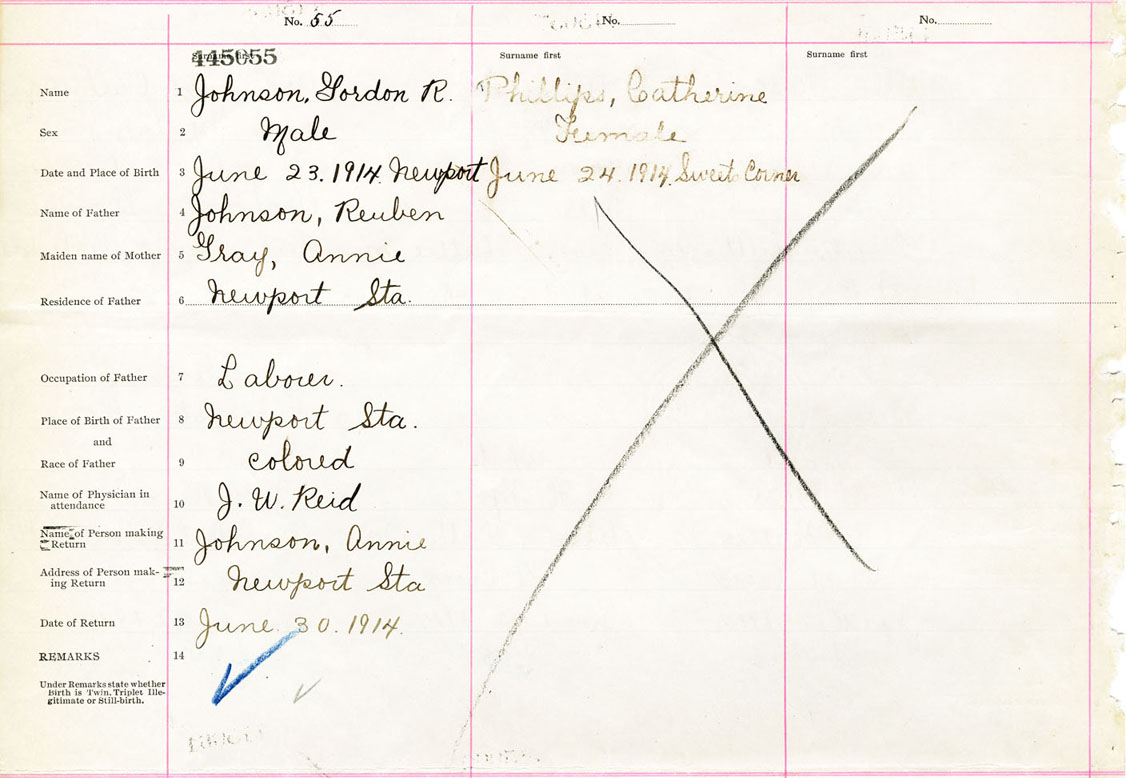 No. 55 No. No.
Surname first Surname first Surname first
445055
Name 1 Johnson, Gordon R. Phillips, Catherine
Sex 2 Male Female
Date and Place of Birth 3 June 23. 1914. Newport June 24. 1914. Sweets Corner
Name of Father 4 Johnson, Reuben
Maiden name of Mother 5 Gray, Annie
Residence of Father 6 Newport Sta.
Occupation of Father 7 Laborer.
Place of Birth of Father 8 Newport Sta.
and
Race of Father 9 Colored
Name of Physician in
attendance 10 J. W. Reid
Name of Person making
Return 11 Johnson, Annie
Address of Person mak-
ing Return 12 Newport Sta
Date of Return 13 June 30. 1914.
REMARKS 14
Under Remarks state whether
Birth is Twin, Triplet Ille-
gitimate or Still-birth.